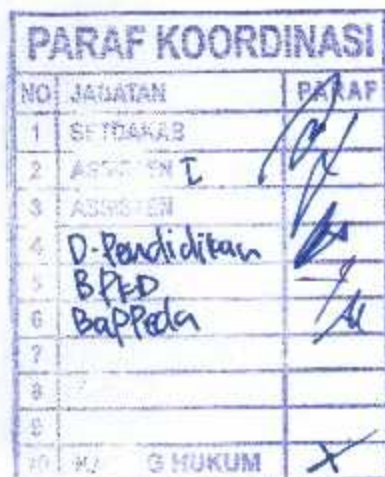 PARAF KOORDINASI
NO JABATAN PARAF
1 SETDAKAB
2 ASSISTEN I
3 ASSISTEN
4 D-Pendidikan
5 BPKD
6 Bappeda
7
8
9
10 G HUKUM